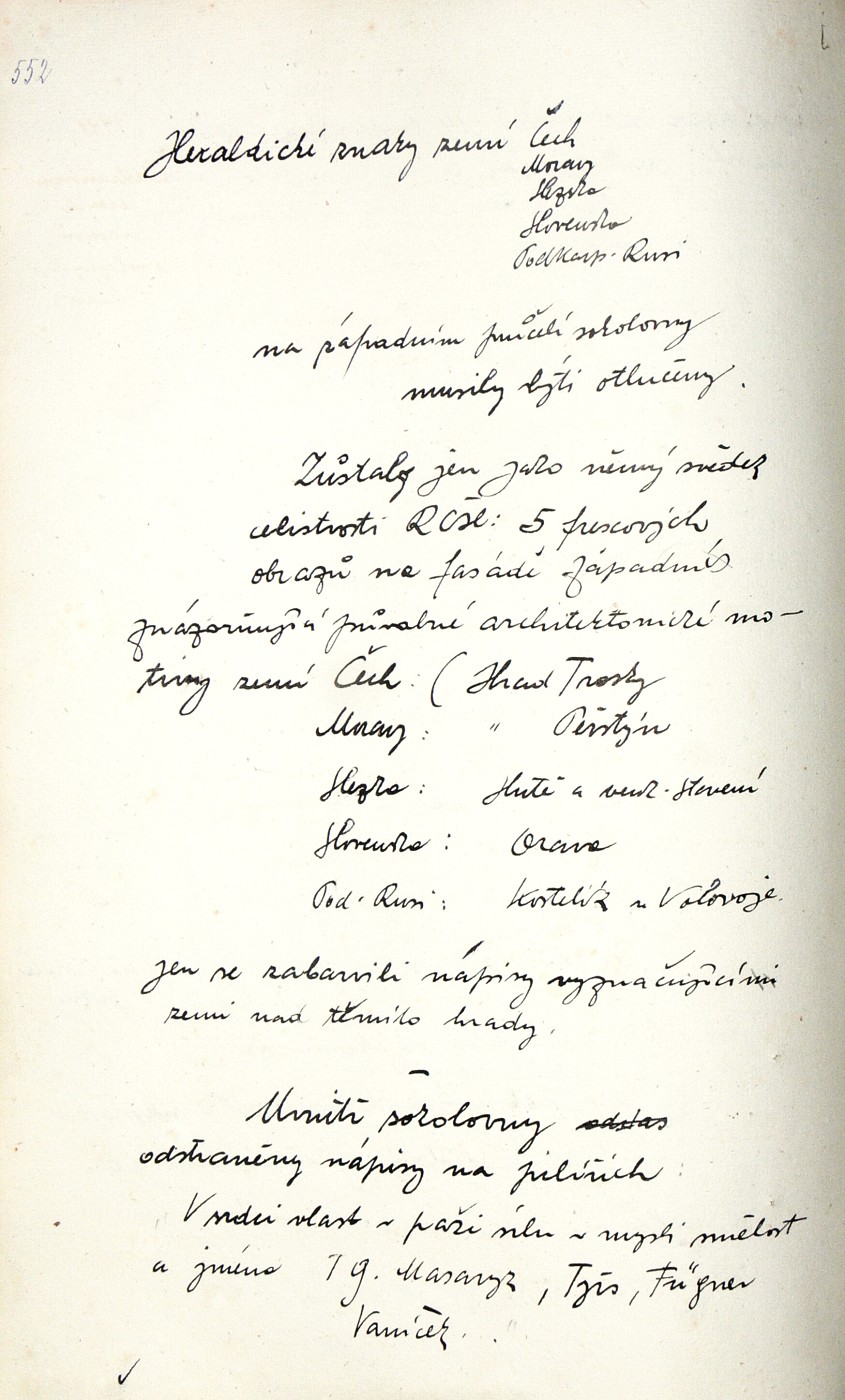 552
Heraldické znaky zemí Čech
Moravy
Slezska
Slovenska
Podkarp. Rusi
na západním průčelí sokolovny
musily býti otlučeny.
Zůstaly jen jako němý svědek
celistvosti RČSl: 5 frescových
obrazů na fasádě západní
znázorňující původné architektonické mo-
tivy zemí Čech: (Hrad Trosky
Moravy: " Pernštýn
Slezska: Hutě a venk. stavení
Slovenska: Orava
Pod. Rusi: Kostelík u Volovoje.
jen se zabarvili nápisy vyznačujícími
zemi nad těmito hrady.
Uvnitř sokolovny
odstraněny nápisy na pilířích:
V srdci vlast v paži sílu v mysli smělost
a jména T G. Masaryk, Tyrš, Fügner
Vaníček.